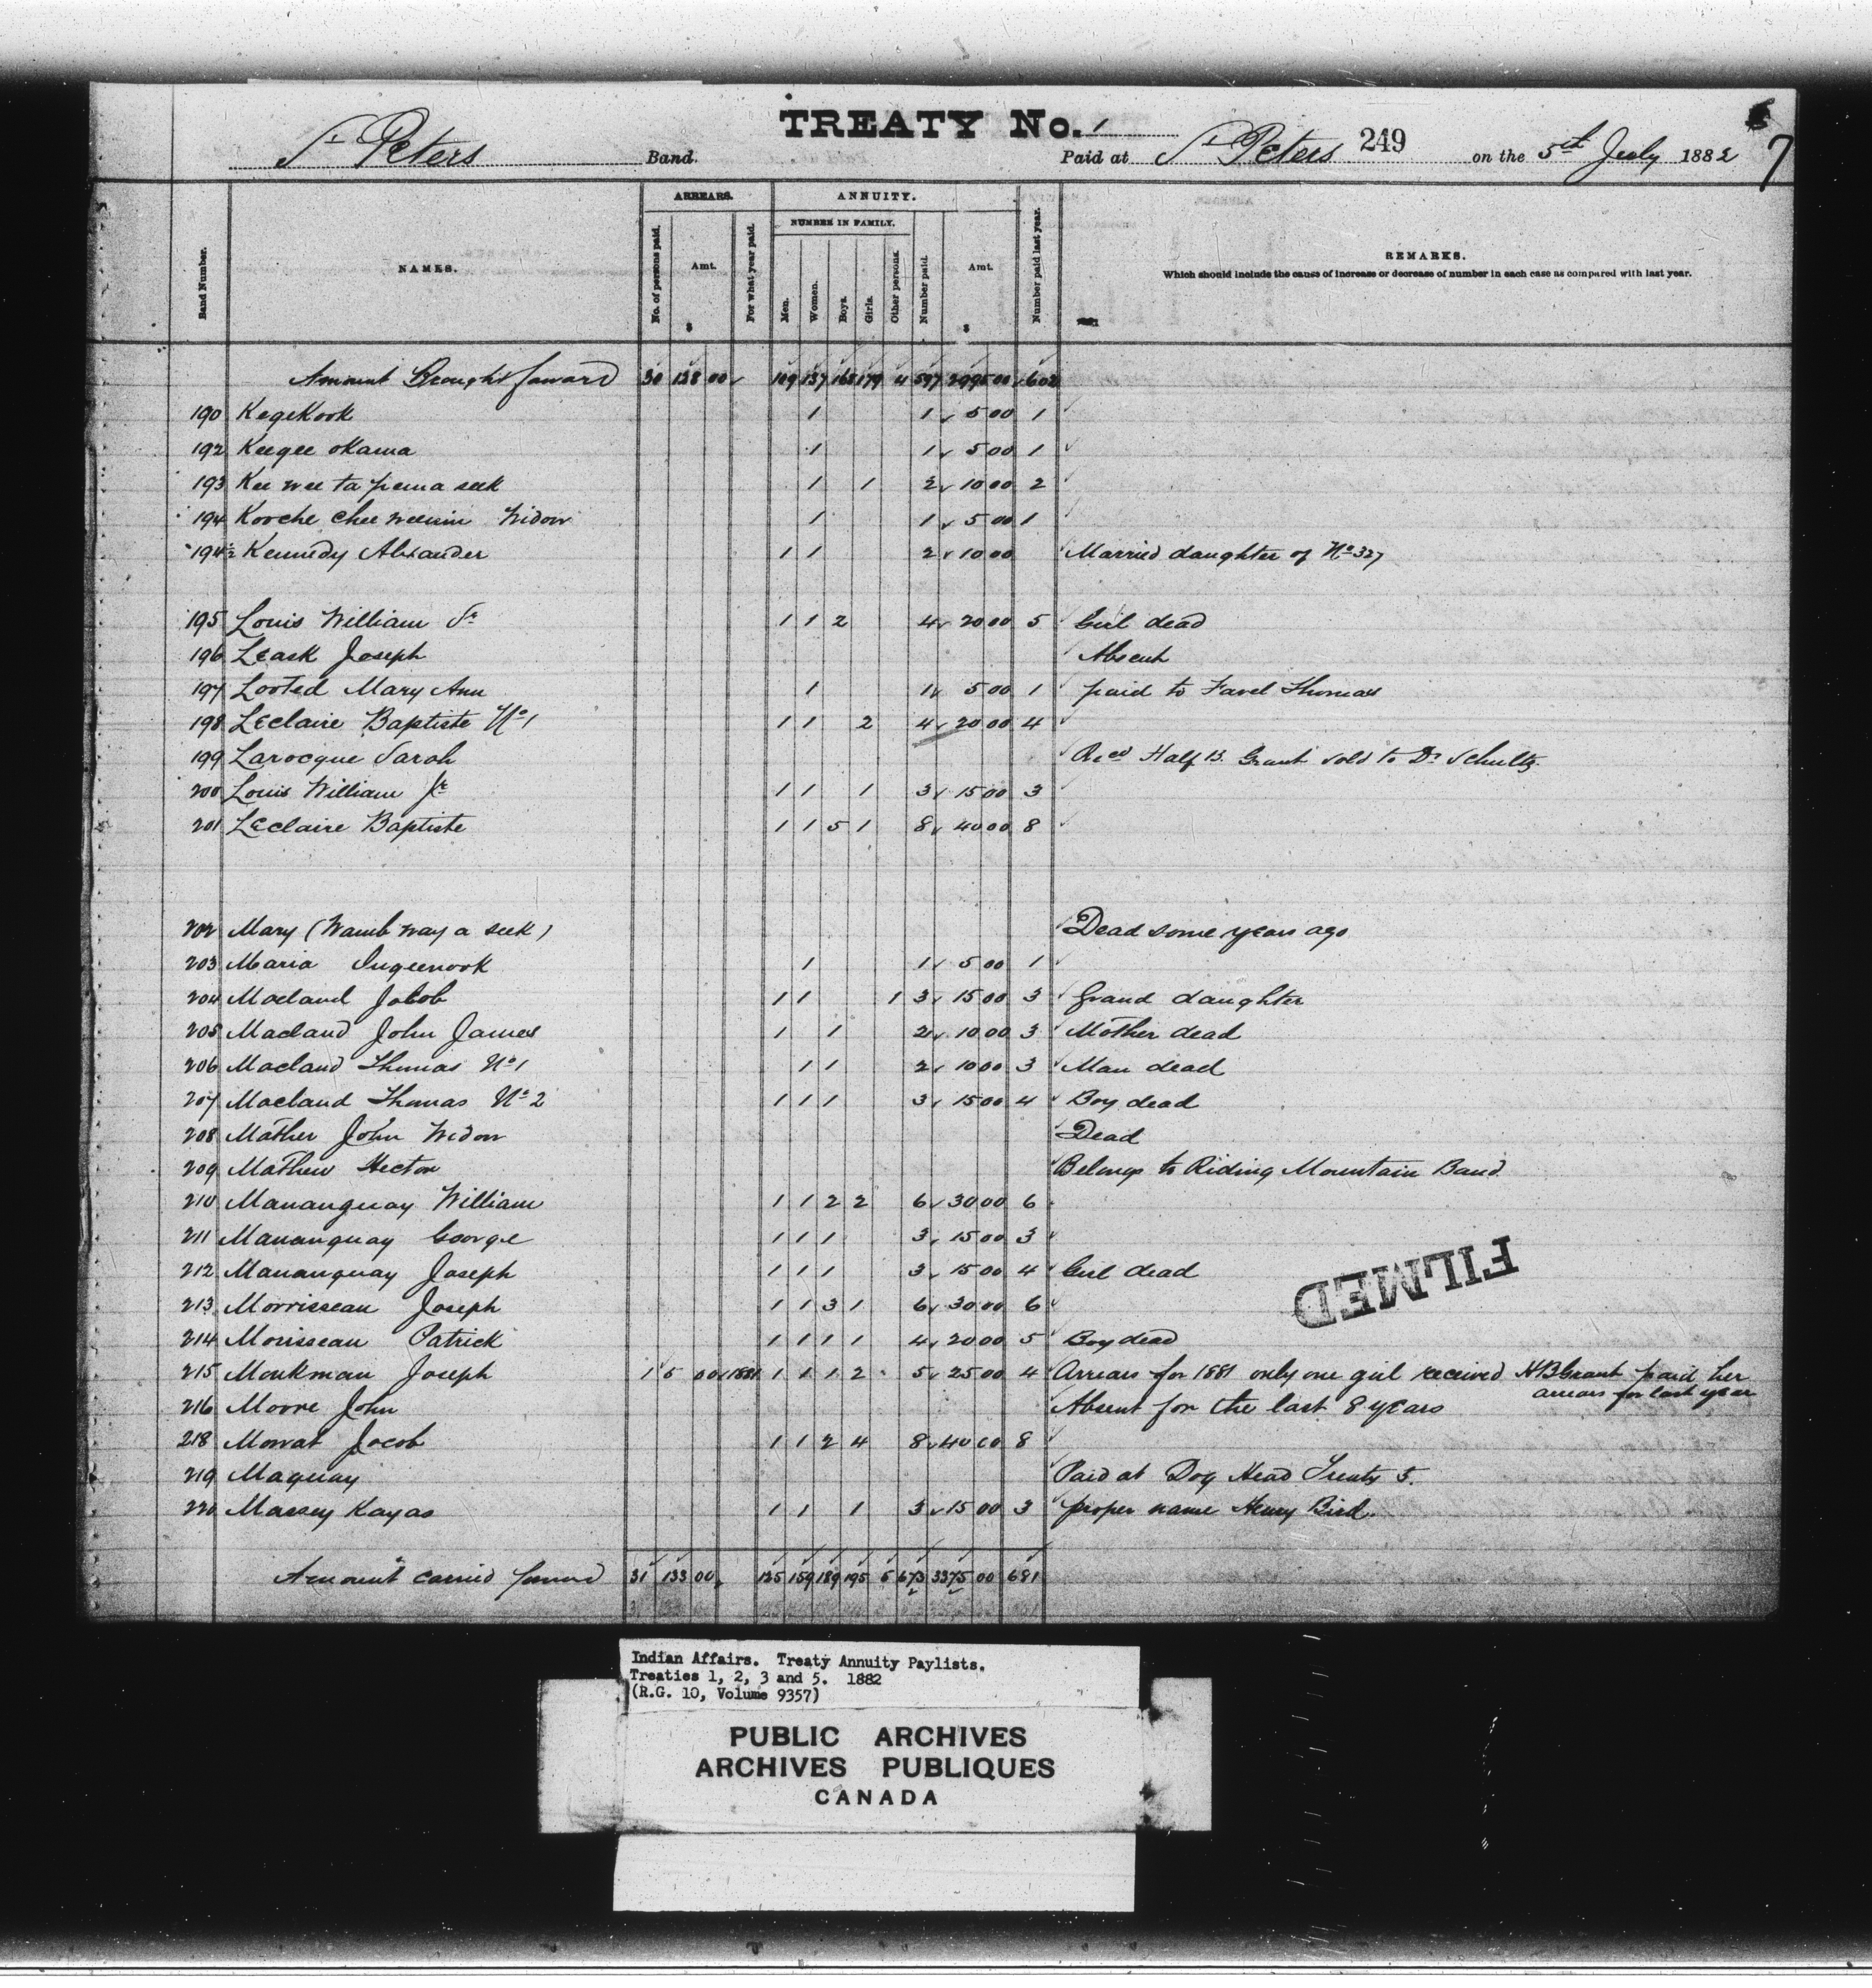 TREATY No. 1
St Peters Band. Paid at St Peters 249 on the 5th July 1882 7
ARREARS. ANNUITY.
NUMBER IN FAMILY.
Band Number. NAMES. No. of persons paid. Amt. $ For what year paid. Men. Women. Boys. Girls. Other persons. Number paid. Amt. $ Number paid last year. REMARKS.
Which should include the cause of increase or decrease of number in each case as compared with last year.
Amount Brought forward 30 128 00 109 137 168 179 4 597 2995 00 602
190 KegeKook 1 1 5 00 1
192 Keegee okama 1 1 5 00 1
193 Kee wee ta pema seek 1 1 2 10 00 2
194 Kooche chee weenin Widow 1 1 5 00 1
194½ Kennedy Alexander 1 1 2 10 00 Married daughter of No 327
195 Louis William Sr 1 1 2 4 20 00 5 Girl dead
196 Leask Joseph Absent
197 Looted Mary Ann 1 1 5 00 1 paid to Favel Thomas
198 Leclaire Baptiste No 1 1 1 2 4 20 00 4
199 Larocque Sarah Recd Half B. Grant sold to Dr Schultz
200 Louis William Jr 1 1 1 3 15 00 3
201 Leclaire Baptiste 1 1 5 1 8 40 00 8
202 Mary (Wamb way a seek) Dead some years ago
203 Maria Ingeenook 1 1 5 00 1
204 Macland Jacob 1 1 1 3 15 00 3 Grand daughter
205 Macland John James 1 1 2 10 00 3 Mother dead
206 Macland Thomas No 1 1 1 2 10 00 3 Man dead
207 Macland Thomas No 2 1 1 1 3 15 00 4 Boy dead
208 Mather John Widow Dead
209 Mathew Hector Belongs to Riding Mountain Band
210 Mananquay William 1 1 2 2 6 30 00 6
211 Mananquay George 1 1 1 3 15 00 3
212 Mananquay Joseph 1 1 1 3 15 00 4 Girl dead
FILMED
213 Morrisseau Joseph 1 1 3 1 6 30 00 6
214 Morisseau Patrick 1 1 1 1 4 20 00 5 Boy dead
215 Monkman Joseph 1 5 00 1881 1 1 1 2 5 25 00 4 Arrears for 1881 only one girl received HB Grant paid her
arrears for last year
216 Moore John Absent for the last 8 years
218 Mowat Jacob 1 1 2 4 8 40 00 8
219 Maquay Paid at Dog Head Treaty 5.
220 Massey Kayas 1 1 1 3 15 00 3 proper name Henry Bird.
Amount carried forward 31 133 00 125 159 189 195 5 673 3375 00 681
Indian Affairs. Treaty Annuity Paylists.
Treaties 1, 2, 3 and 5. 1882
(R.G. 10, Volume 9357)
PUBLIC ARCHIVES
ARCHIVES PUBLIQUES
CANADA